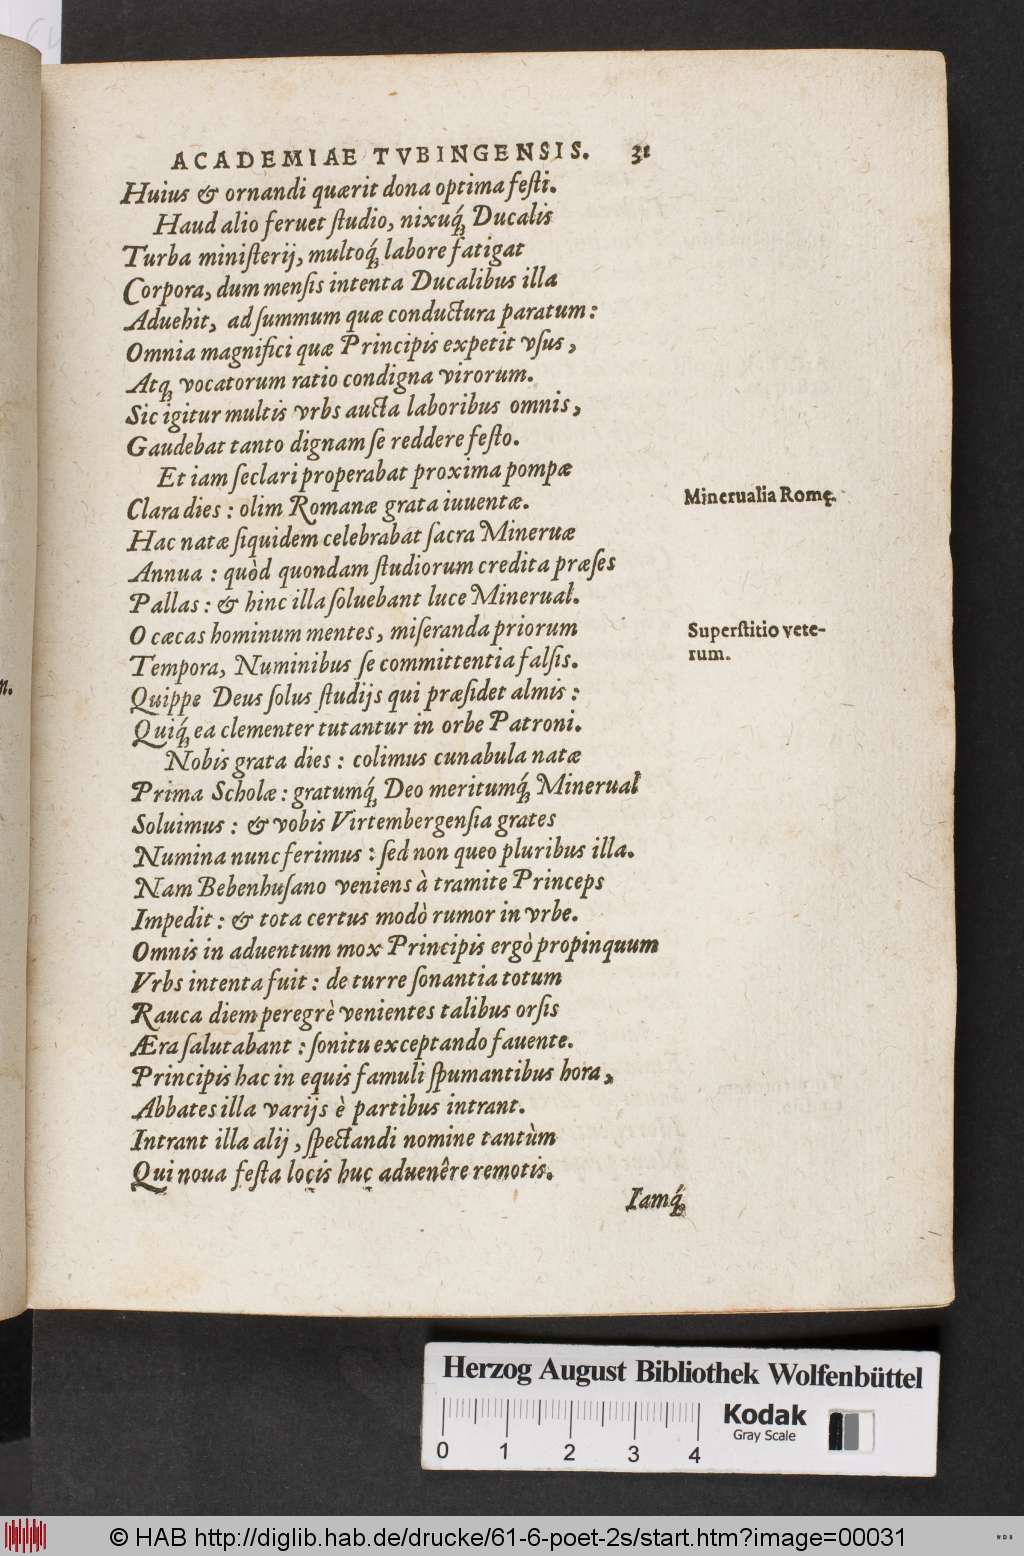 ACADEMIAE TVBINGENSIS. 31
Huius & ornandi quærit dona optima feſti.
Haud alio feruet ſtudio, nixuq́; Ducalis
Turba miniſterij, multoq́; labore fatigat
Corpora, dum menſis intenta Ducalibus illa
Aduehit, ad ſummum quæ conductura paratum:
Omnia magnifici quæ Principis expetit vſus,
Atq; vocatorum ratio condigna virorum.
Sic igitur multis vrbs aucta laboribus omnis,
Gaudebat tanto dignam ſe reddere feſto.
Et iam ſeclari properabat proxima pompæ
Clara dies: olim Romanæ grata iuuentæ.
Minerualia Romę.
Hac natæ ſiquidem celebrabat ſacra Mineruæ
Annua: quòd quondam ſtudiorum credita præſes
Pallas: & hinc illa ſoluebant luce Minerual.
O cæcas hominum mentes, miſeranda priorum
Superſtitio vete-
rum.
Tempora, Numinibus ſe committentia falſis.
Quippe Deus ſolus ſtudijs qui præſidet almis:
Quiq́; ea clementer tutantur in orbe Patroni.
Nobis grata dies: colimus cunabula natæ
Prima Scholæ: gratumq́; Deo meritumq́; Minerual
Soluimus: & vobis Virtembergenſia grates
Numina nunc ferimus: ſed non queo pluribus illa.
Nam Bebenhuſano veniens à tramite Princeps
Impedit: & tota certus modò rumor in vrbe.
Omnis in aduentum mox Principis ergò propinquum
Vrbs intenta fuit: de turre ſonantia totum
Rauca diem peregrè venientes talibus orſis
Æra ſalutabant: ſonitu exceptando fauente.
Principis hac in equis famuli ſpumantibus hora,
Abbates illa varijs è partibus intrant.
Intrant illa alij, ſpectandi nomine tantùm
Qui noua feſta locis huc aduenêre remotis.
Iamq́;
n.
Herzog August Bibliothek Wolfenbüttel
Kodak
Gray Scale
0 1 2 3 4
© HAB http://diglib.hab.de/drucke/61-6-poet-2s/start.htm?image=00031